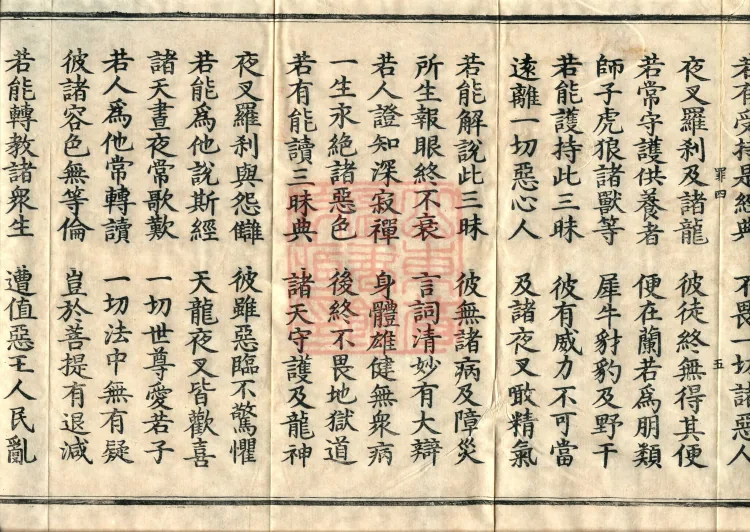 若有受持是經典　不畏一切諸惡人
夜叉羅刹及諸龍　彼徒終無得其便
罪四　五
若常守護供養者　便在蘭若爲朋類
師子虎狼諸獸等　犀牛豺豹及野干
若能護持此三昧　彼有威力不可當
遠離一切惡心人　及諸夜叉噉精氣
若能解說此三昧　彼無諸病及障災
所生報眼終不衰　言詞清妙有大辯
若人證知深寂禪　身體雄健無衆病
一生永絶諸惡色　後終不畏地獄道
若有能讀三昧典　諸天守護及龍神
夜叉羅刹與怨讎　彼雖惡臨不驚懼
若能爲他說斯經　天龍夜叉皆歡喜
諸天晝夜常歌歎　一切世尊愛若子
若人爲他常轉讀　一切法中無有疑
彼諸容色無等倫　豈於菩提有退減
若能轉教諸衆生　遭值惡王人民亂